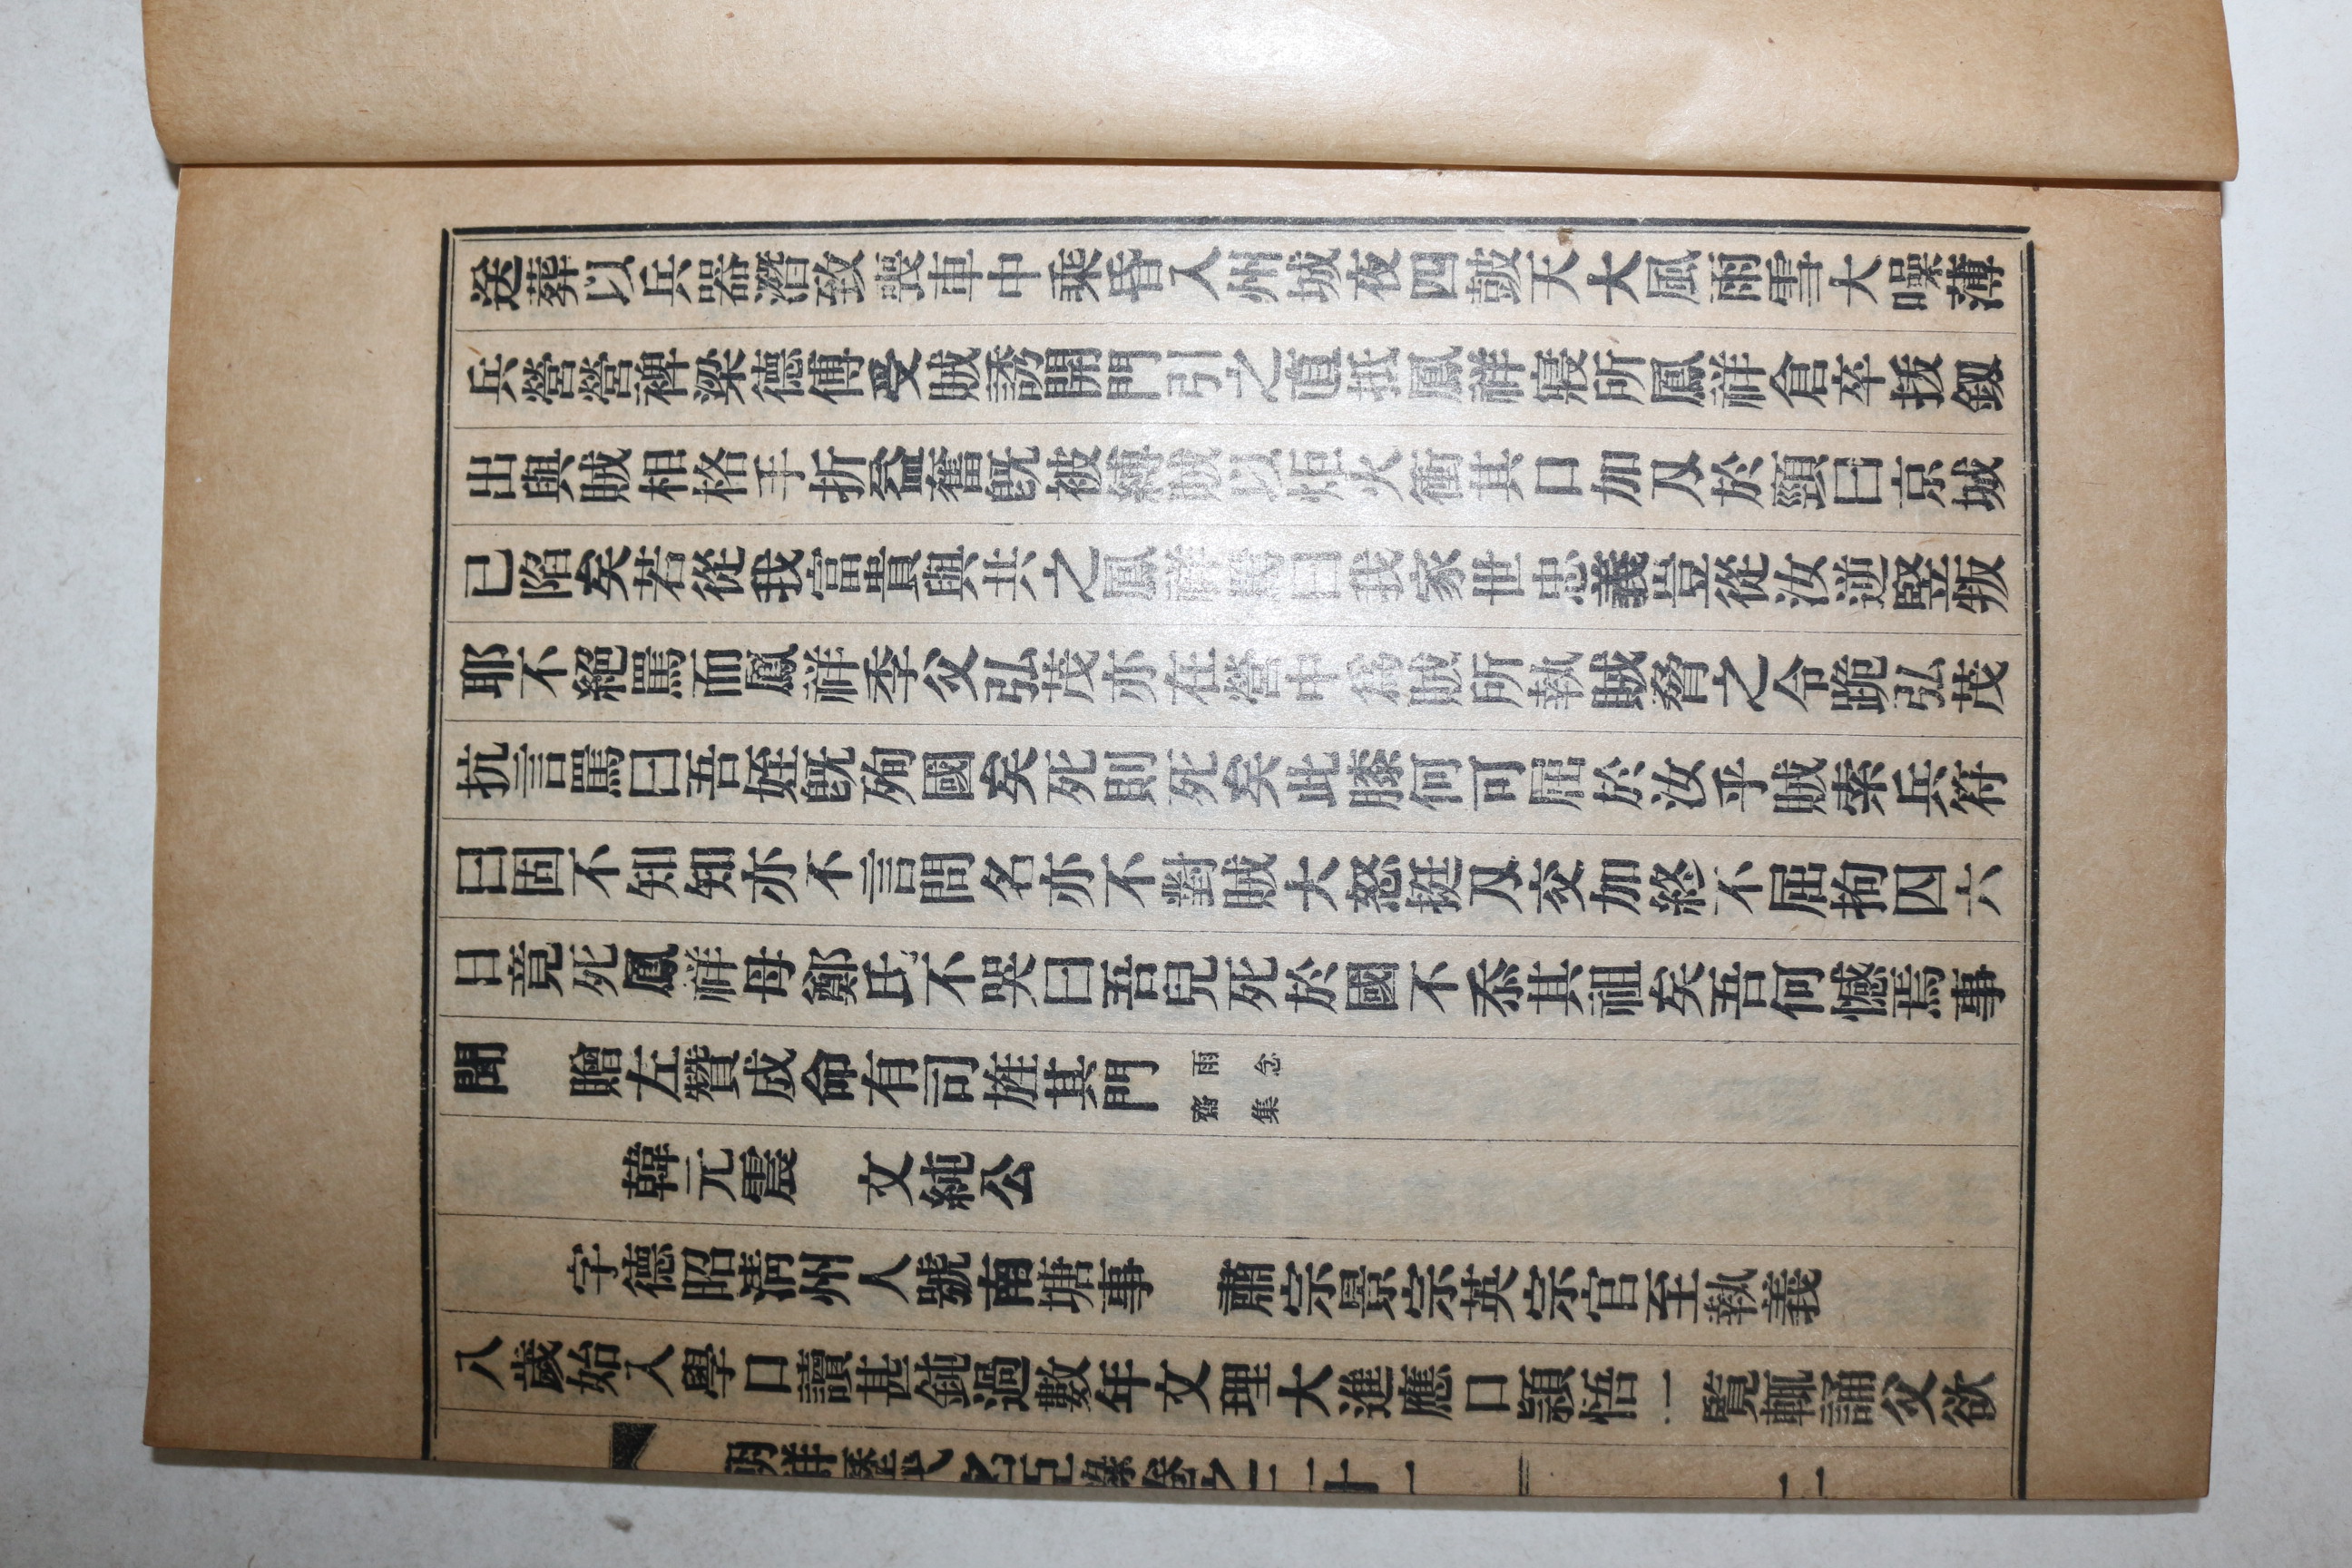 送葬以兵器潛致喪車中乘昏入州城夜四鼓天大風雨雪大噪薄
兵營營裨梁德溥受賊誘開門引之直抵鳳祥寢所鳳祥倉卒拔釰
出與賊相格手折益奮旣被縛賊以炬火衝其口加刃於頸曰京城
已陷矣若從我富貴與共之鳳祥罵曰我家世忠義豈從汝逆竪叛
耶不絕罵而鳳祥季父弘茂亦在營中爲賊所執賊脅之令跪弘茂
抗言罵曰吾姪旣殉國矣死則死矣此膝何可屈於汝乎賊索兵符
曰固不知知亦不言問名亦不對賊大怒挺刃交加終不屈拘囚六
日竟死鳳祥母鄭氏不哭曰吾兒死於國不忝其祖矣吾何憾焉事
聞 贈左贊成命有司旌其門 雨念齋集
韓元震 文純公
字德昭淸州人號南塘事 肅宗景宗英宗官至執義
八歲始入學口讀甚鈍過數年文理大進應口穎悟一覽輒誦父欲
朝鮮歷代名臣錄卷之二十一 二